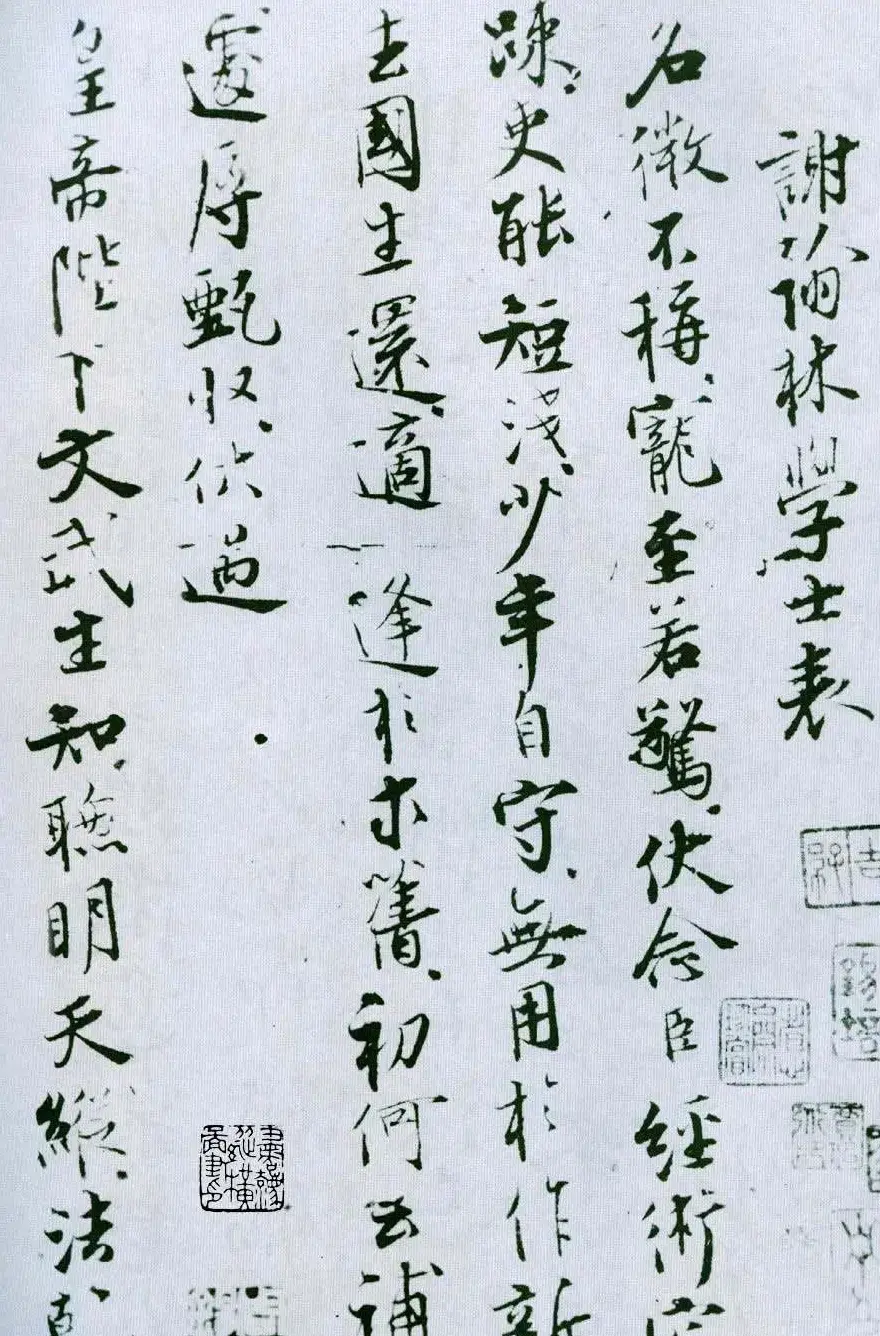 謝翰林學士表
名微不稱寵至若驚伏念臣經術空
踈吏能短淺少年自守無用於作新
去國生還適逢於求舊初何云補
遽辱甄收伏遇
皇帝陛下文武生知聰明天縱法